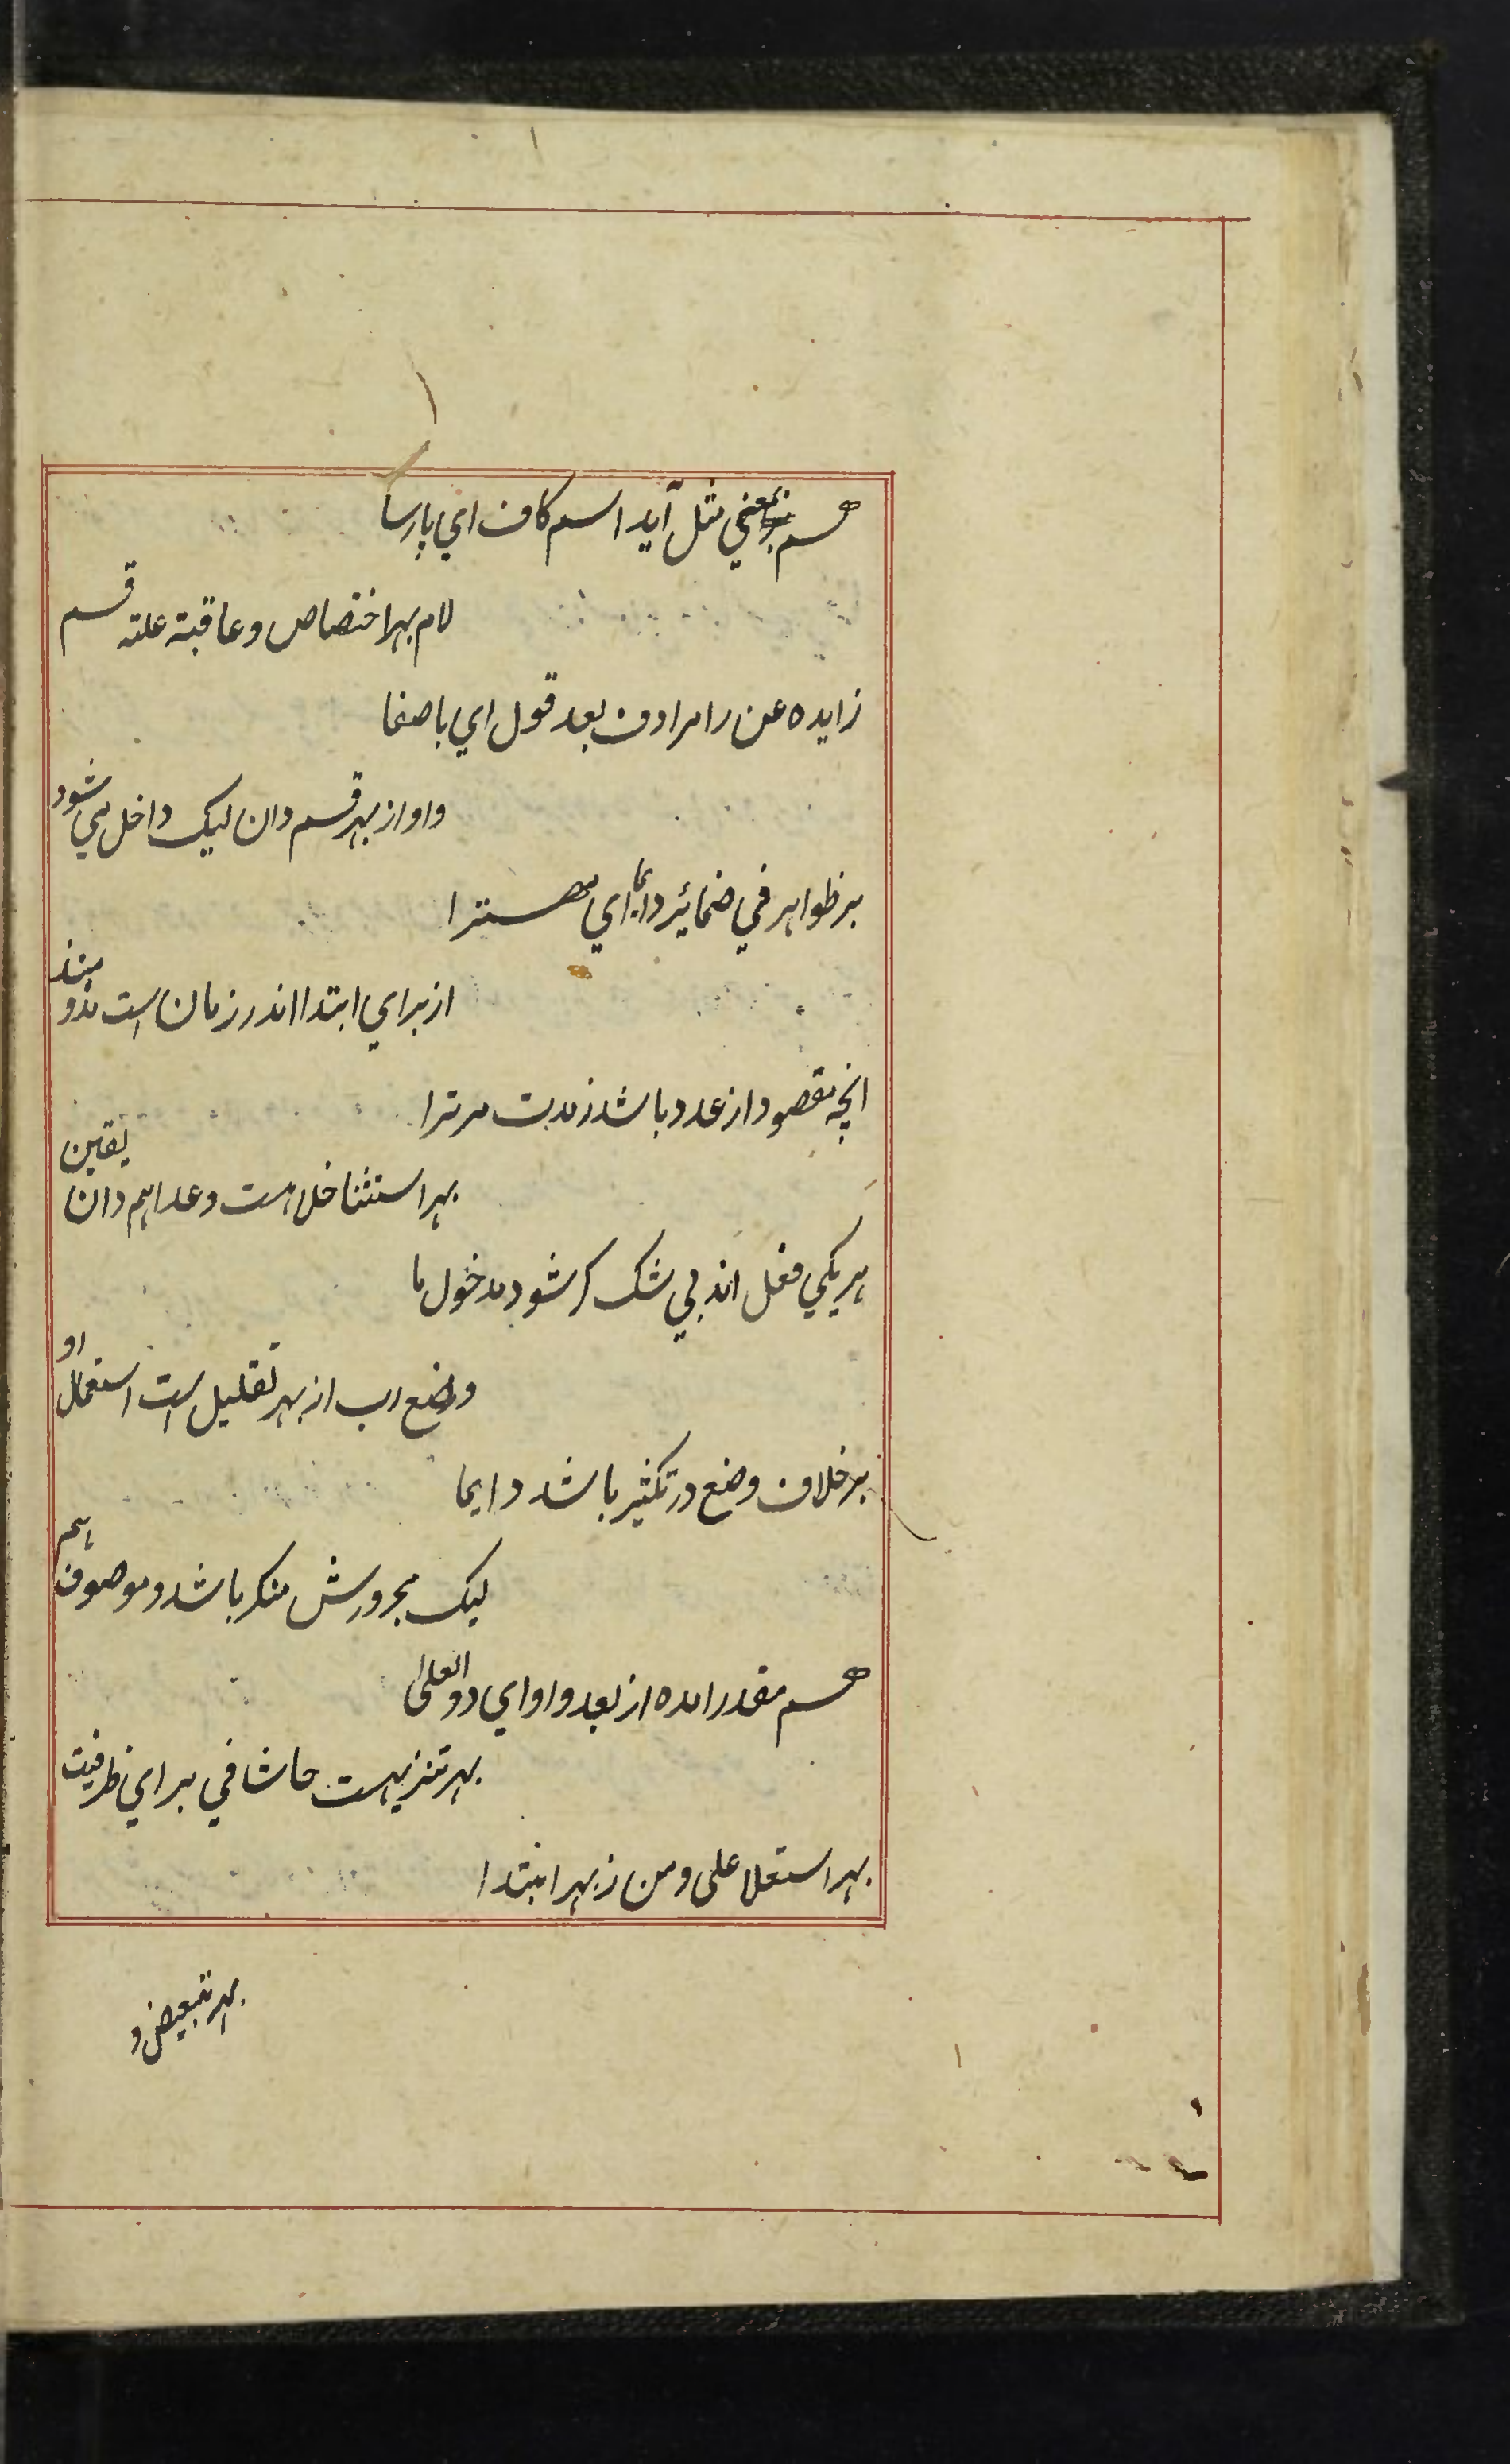 هم بمعني مثل آيد اسم كاف اي پارسا
لام بهر اختصاص و عاقبة علته قسم
زايده عن را مرادف بعد قول اي باصفا
واو از بهر قسم دان ليک داخل مي شود
بر ظواهر في ضمائر دايما اي مهترا
از براي ابتدا اندر زمان است مذ و منذ
انچه مقصود از عدد باشد ز مدت مر ترا
بهر استثنا خلا هست و عدا هم دان يقين
هر يكي فعل اند بي شک گر شود مدخول ما
وضع رب از بهر تقليل است استعمال او
بر خلاف وضع در تكثير باشد دايما
ليک مجرورش منكر باشد و موصوف هم
هم مقدر امده از بعد واو اي ذوالعلى
بهر تنزيهست حاشا في براي ظرفيت
بهر استعلا على و من ز بهر ابتدا
بهر تبعيض و